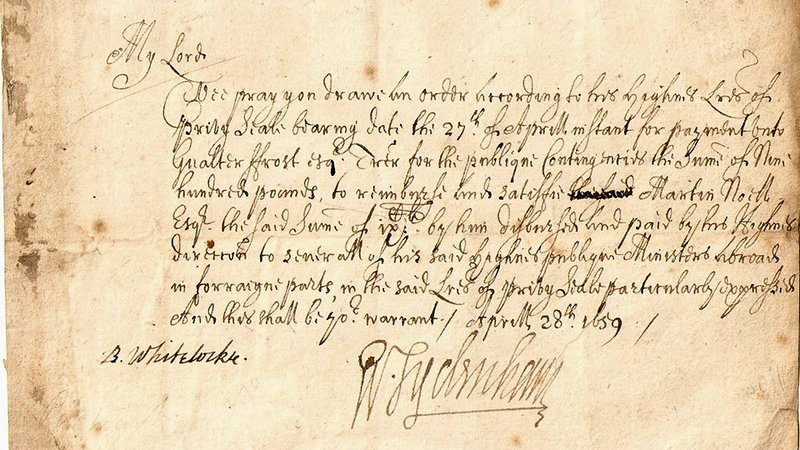 My Lord
Wee pray you drawe an order according to his Highnes Lres of
Privy Seale bearing date the 27th of Aprill instant for payment unto
Gualter ffrost esqr Trer for the publique Contingencies the Sume of Nine
hundred pounds, to reimburse and satisfie Martin Noell
Esqr the said Sume of ixCli by him disbursed and paid by his Highnes
direccon to severall of his said Highnes publique Ministers abroad
in forraigne parts, in the said Lres of Privy Seale particularly expressed
And this shall be yor warrant / Aprill 28th 1659 /
B. Whitelocke.
W. Sydenham